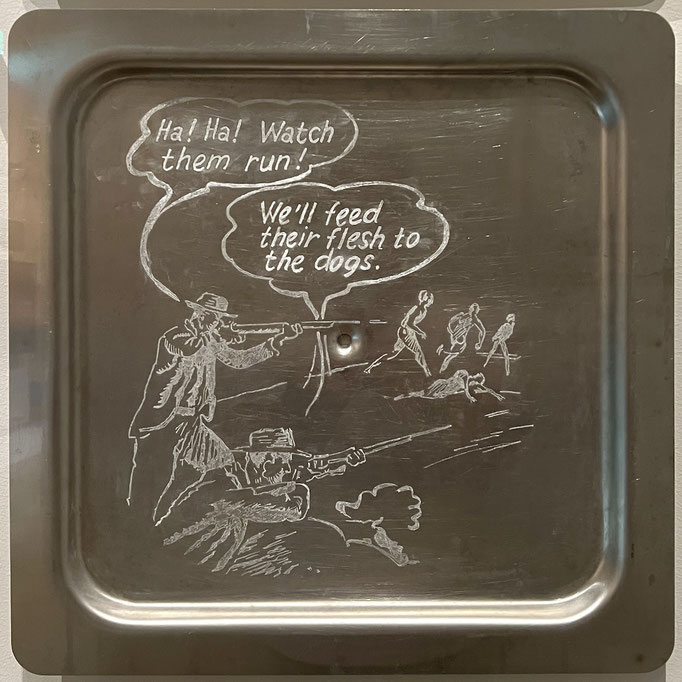 Ha! Ha! Watch
them run!
We'll feed
their flesh to
the dogs.